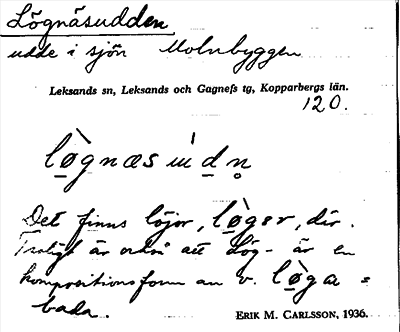 Lögnäsudden
udde i sjön Molnbyggen
Leksands sn, Leksands och Gagnefs tg, Kopparbergs län.
120.
lø̀gnæsùdn̥
Det finns löjor, lø̀gər, där.
Troligt är också att Lög- är en
kompositionsform av v. lø̀ga =
bada.
ERIK M. CARLSSON, 1936.